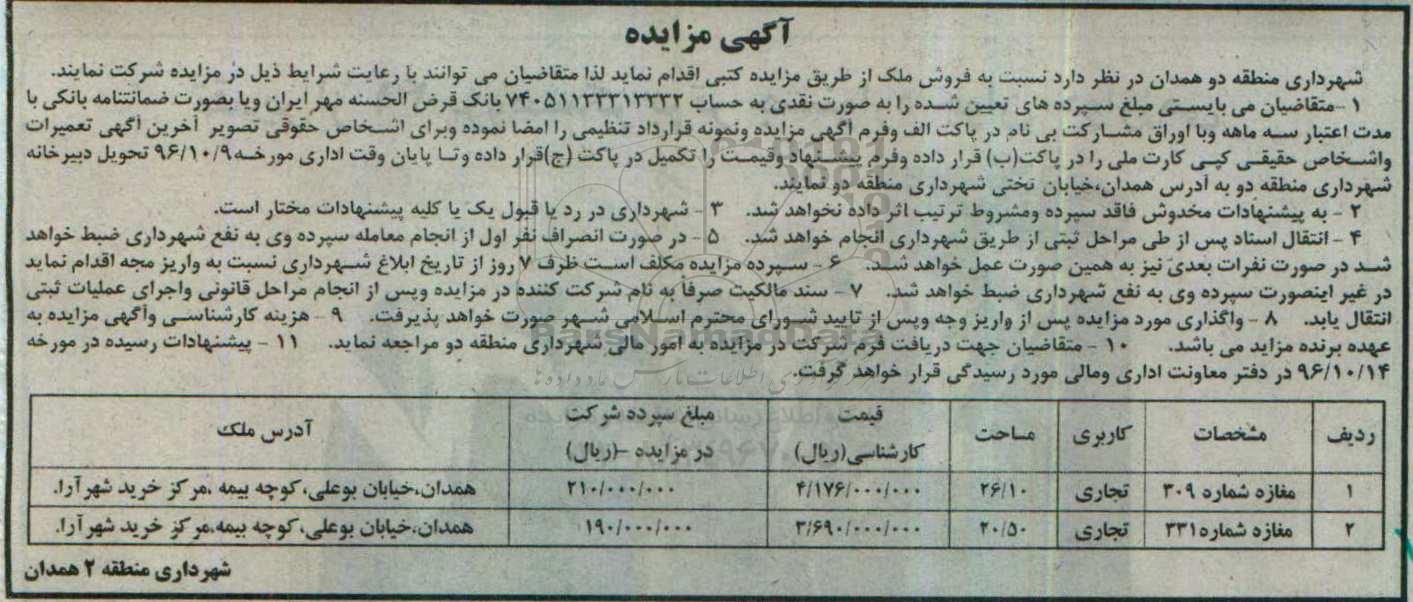 آگهی مزایده
شهرداری منطقه دو همدان در نظر دارد نسبت به فروش ملک از طریق مزایده کتبی اقدام نماید لذا متقاضیان می توانند با رعایت شرایط ذیل در مزایده شرکت نمایند.
۱ -متقاضیان می بایستی مبلغ سپرده های تعیین شده را به صورت نقدی به حساب ۷۴۰۵۱۱۳۳۳۱۳۳۳۲ بانک قرض الحسنه مهر ایران ویا بصورت ضمانتنامه بانکی با
مدت اعتبار سه ماهه ویا اوراق مشارکت بی نام در پاکت الف وفرم آگهی مزایده ونمونه قرارداد تنظیمی را امضا نموده وبرای اشخاص حقوقی تصویر آخرین آگهی تعمیرات
واشخاص حقیقی کپی کارت ملی را در پاکت(ب) قرار داده وفرم پیشنهاد وقیمت را تکمیل در پاکت (ج)قرار داده وتا پایان وقت اداری مورخه۹۶/۱۰/۹ تحویل دبیرخانه
شهرداری منطقه دو به آدرس همدان،خیابان تختی شهرداری منطقه دو نمایند.
۲ - به پیشنهادات مخدوش فاقد سپرده ومشروط ترتیب اثر داده نخواهد شد. ۳ - شهرداری در رد یا قبول یک یا کلیه پیشنهادات مختار است.
۴ - انتقال اسناد پس از طی مراحل ثبتی از طریق شهرداری انجام خواهد شد. ۵ - در صورت انصراف نفر اول از انجام معامله سپرده وی به نفع شهرداری ضبط خواهد
شد در صورت نفرات بعدی نیز به همین صورت عمل خواهد شد. ۶ - سپرده مزایده مکلف است ظرف ۷ روز از تاریخ ابلاغ شهرداری نسبت به واریز مجه اقدام نماید
در غیر اینصورت سپرده وی به نفع شهرداری ضبط خواهد شد. ۷ - سند مالکیت صرفاً به نام شرکت کننده در مزایده وپس از انجام مراحل قانونی واجرای عملیات ثبتی
انتقال یابد. ۸ - واگذاری مورد مزایده پس از واریز وجه وپس از تایید شورای محترم اسلامی شهر صورت خواهد پذیرفت. ۹ - هزینه کارشناسی وآگهی مزایده به
عهده برنده مزاید می باشد. ۱۰ - متقاضیان جهت دریافت فرم شرکت در مزایده به امور مالی شهرداری منطقه دو مراجعه نماید. ۱۱ - پیشنهادات رسیده در مورخه
۹۶/۱۰/۱۴ در دفتر معاونت اداری ومالی مورد رسیدگی قرار خواهد گرفت.
ردیف مشخصات کاربری مساحت قیمت کارشناسی(ریال) مبلغ سپرده شرکت در مزایده -(ریال) آدرس ملک
۱ مغازه شماره ۳۰۹ تجاری ۲۶/۱۰ ۴/۱۷۶/۰۰۰/۰۰۰ ۲۱۰/۰۰۰/۰۰۰ همدان،خیابان بوعلی،کوچه بیمه ،مرکز خرید شهر آرا.
۲ مغازه شماره۳۳۱ تجاری ۲۰/۵۰ ۳/۶۹۰/۰۰۰/۰۰۰ ۱۹۰/۰۰۰/۰۰۰ همدان،خیابان بوعلی،کوچه بیمه،مرکز خرید شهر آرا.
شهرداری منطقه ۲ همدان